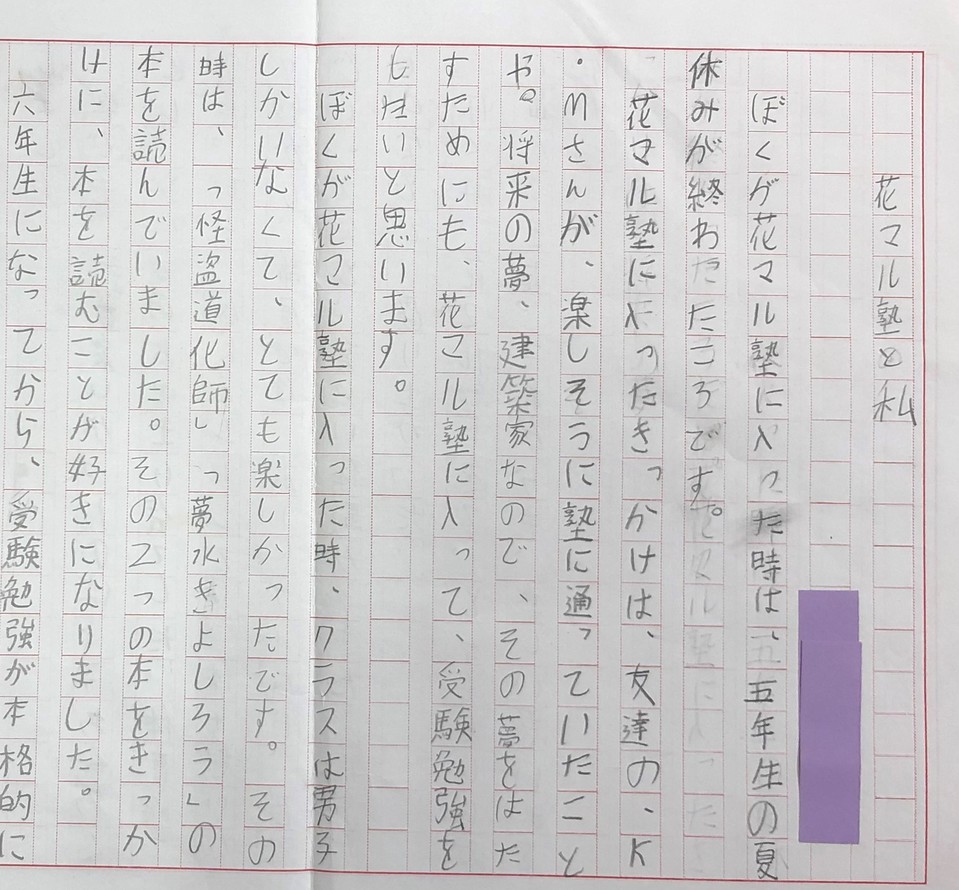 花マル塾と私
ぼくが花マル塾に入った時は、五年生の夏
休みが終わたたころです。
花マル塾に入ったきっかけは、友達の、K
・Mさんが、楽しそうに塾に通っていたこと
や。将来の夢、建築家なので、その夢をはた
すためにも、花マル塾に入って、受験勉強を
したいと思います。
ぼくが花マル塾に入った時、クラスは男子
しかいなくて、とても楽しかったです。その
時は、「怪盗道化師」「夢水きよしろう」の
本を読んでいました。その2つの本をきっか
けに、本を読むことが好きになりました。
六年生になってから、受験勉強が本格的に